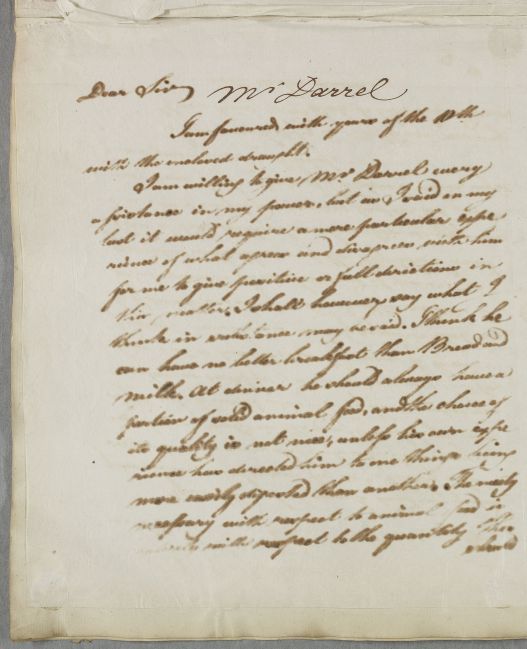 Dear Sir Mr Darrel
I am favoured with yours of the 10th
with the inclosed draught.
I am willing to give Mr Darrel every
assistance in my power, but as I said in my
last it would require a more particular expe
rience of what agrees and disagrees with him
for me to give positive or full directions in
this matter. I shall however say what I
think in substance may be said. I think he
can have no better breakfast than Bread and
milk. At dinner he should always have a
portion of solid animal food, and the choice of
its quality is not nice, unless his own expe
rience has directed him to one thing being
more easily digested than another. The nicety
necessary with respect to animal food is
with respect to the quantity. This
should